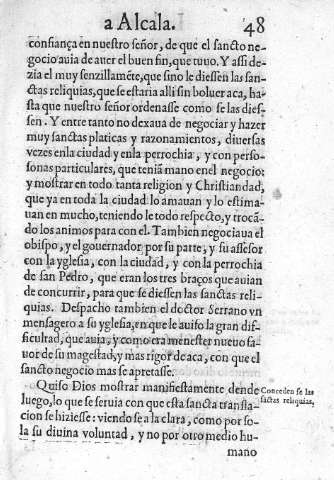 a Alcala. 48
confiança en nuestro señor, de que el sancto ne-
gocio auia de auer el buen fin, que tuuo. Y assi de-
zia el muy senzillamẽte, que sino le diessen las san-
ctas reliquias, que se estaria alli sin boluer aca, ha-
sta que nuestro señor ordenasse como se las dies-
sen. Y entre tanto no dexaua de negociar y hazer
muy sanctas platicas y razonamientos, diuersas
vezes enla ciudad y enla perrochia, y con perso-
sonas particulares, que teniã mano en el negocio:
y mostrar en todo tanta religion y Christiandad,
que ya en toda la ciudad lo amauan y lo estima-
uan en mucho, teniendo le todo respecto, y trocã-
do los animos para con el. Tambien negociaua el
obispo, y el gouernador por su parte, y su assessor
con la yglesia, con la ciudad, y con la perrochia
de san Pedro, que eran los tres braços que auian
de concurrir, para que se diessen las sanctas reli-
quias. Despacho tambien el doctor Serrano vn
mensagero a su yglesia, en que le auiso la gran dif-
ficultad, que auia, y como era menester nueuo fa-
uor de su magestad, y mas rigor de aca, con que el
sancto negocio mas se apretasse.
Quiso Dios mostrar manifiestamente dende
luego, lo que se seruia con que esta sancta transla-
cion se hiziesse: viendo se a la clara, como por so-
la su diuina voluntad, y no por otro medio hu-
mano
Conceden se las
sãctas reliquias,